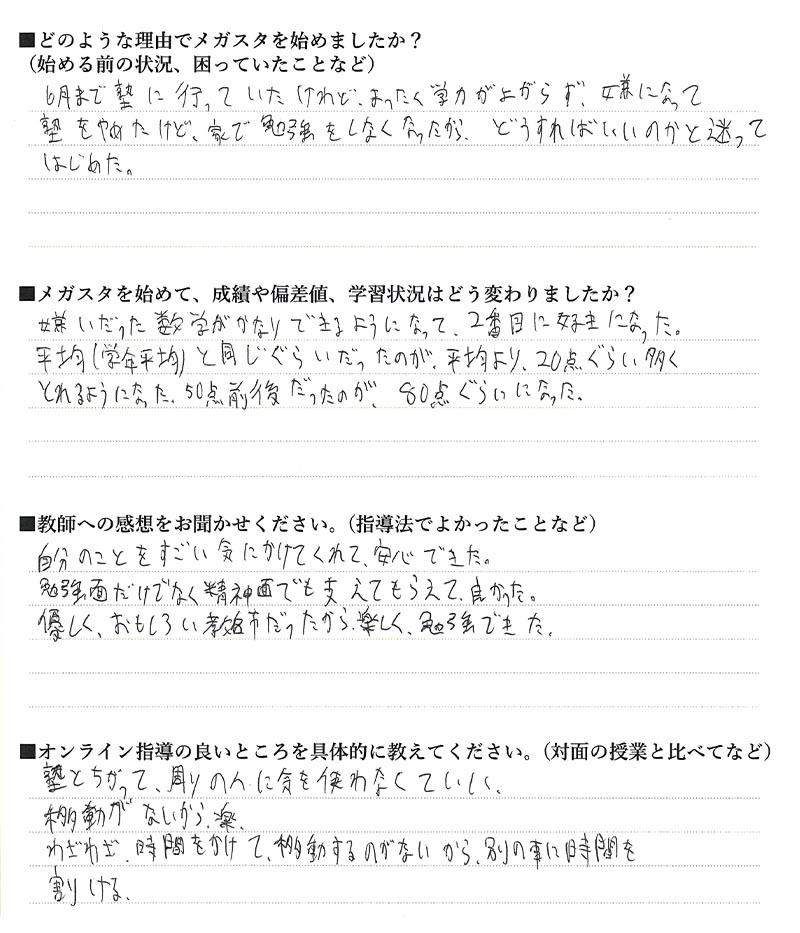 ■どのような理由でメガスタを始めましたか？
（始める前の状況、困っていたことなど）
6月まで塾に行っていたけれど、まったく学力が上がらず、嫌になって
塾をやめたけど、家で勉強をしなくなったから、どうすればいいのかと迷って
はじめた。
■メガスタを始めて、成績や偏差値、学習状況はどう変わりましたか？
嫌いだった数学がかなりできるようになって、2番目に好きになった。
平均（学年平均）と同じぐらいだったのが、平均より、20点ぐらい多く
とれるようになった。50点前後だったのが、80点ぐらいになった。
■教師への感想をお聞かせください。（指導法でよかったことなど）
自分のことをすごい気にかけてくれて、安心できた。
勉強面だけでなく精神面でも支えてもらえて、良かった。
優しく、おもしろい教師だったから、楽しく、勉強できた。
■オンライン指導の良いところを具体的に教えてください。（対面の授業と比べてなど）
塾とちがって、周りの人に気を使わなくていい、
移動がないから、楽、
わざわざ、時間をかけて、移動するのがないから、別の事に時間を
割ける、